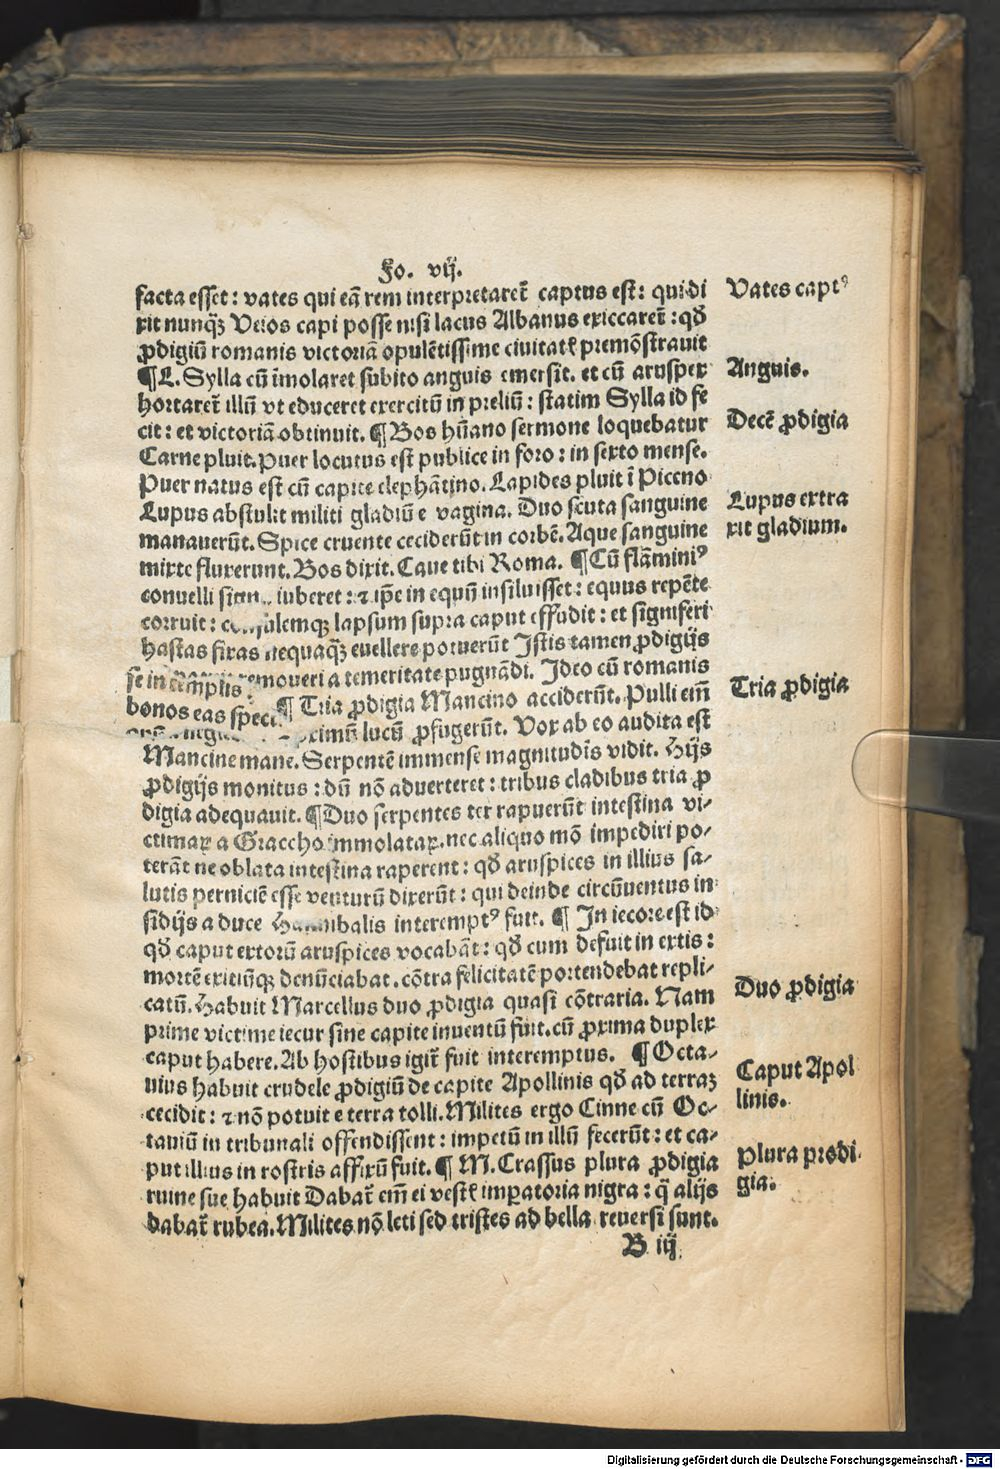 Fo. vij.
facta esset: vates qui eã rem interpretaret̃ captus est: qui di
xit nunqꝫ Veios capi posse nisi lacus Albanus exiccaret̃: qđ
ꝓdigiũ romanis victoriã opulẽtissime ciuitatꝭ premõstrauit
¶ L. Sylla cũ ĩmolaret subito anguis emersit. et cũ aruspex
hortaret̃ illũ vt educeret exercitũ in preliũ: statim Sylla id fe
cit: et victoriã obtinuit. ¶ Bos hũano sermone loquebatur
Carne pluit. Puer locutus est publice in foro: in sexto mense.
Puer natus est cũ capite elephãtino. Lapides pluit ĩ Piceno
Lupus abstulit militi gladiũ e vagina. Duo scuta sanguine
manauerũt. Spice cruente ceciderũt in corbẽ. Aque sanguine
mixte fluxerunt. Bos dixit. Caue tibi Roma. ¶ Cũ flãminiꝰ
conuelli iuberet: ⁊ ip̃e in equũ insiluisset: equus repẽte
corruit: lapsum supra caput effudit: et signiferi
hastas fixas nequaqꝫ euellere potuerũt Istis tamen ꝓdigijs
se in templis remoueri a temeritate pugnãdi. Ideo cũ romanis
bonos eas ¶ Tria ꝓdigia Mancino acciderũt. Pulli em̃
lucũ ꝓfugerũt. Vox ab eo audita est
Mancine mane. Serpentẽ immense magnitudĩs vidit. Hijs
ꝓdigijs monitus: dũ nõ aduerteret: tribus cladibus tria ꝓ
digia adequauit. ¶ Duo serpentes ter rapuerũt intestina vi-
ctimaꝝ a Graccho immolataꝝ. nec aliquo mõ impediri po-
terãt ne oblata intestina raperent: qđ aruspices in illius sa-
lutis perniciẽ esse venturũ dixerũt: qui deinde circũuentus in
sidijs a duce Hannibalis interemptꝰ fuit. ¶ In iecore est id
qđ caput extorũ aruspices vocabãt: qđ cum defuit in extis:
mortẽ exitiũqꝫ denũciabat. cõtra felicitatẽ portendebat repli-
catũ. Habuit Marcellus duo ꝓdigia quasi cõtraria. Nam
prime victime iecur sine capite inuentũ fuit. cũ ꝓxima duplex
caput habere. Ab hostibus igit̃ fuit interemptus. ¶ Octa-
uius habuit crudele ꝓdigiũ de capite Apollinis qđ ad terraꝫ
cecidit: ⁊ nõ potuit e terra tolli. Milites ergo Cinne cũ Oc-
tauiũ in tribunali offendissent: impetũ in illũ fecerũt: et ca-
put illius in rostris affixũ fuit. ¶ M. Crassus plura ꝓdigia
ruine sue habuit Dabat̃ em̃ ei vestꝭ imꝑatoria nigra: q̃ alijs
dabat̃ rubea. Milites nõ leti sed tristes ad bella reuersi sunt.
B iij
Vates captꝰ
Anguis.
Decẽ ꝓdigia
Lupus extra
xit gladium.
Tria ꝓdigia
Duo ꝓdigia
Caput Apol
linis.
Plura prodi
gia.
Digitalisierung gefördert durch die Deutsche Forschungsgemeinschaft - DFG